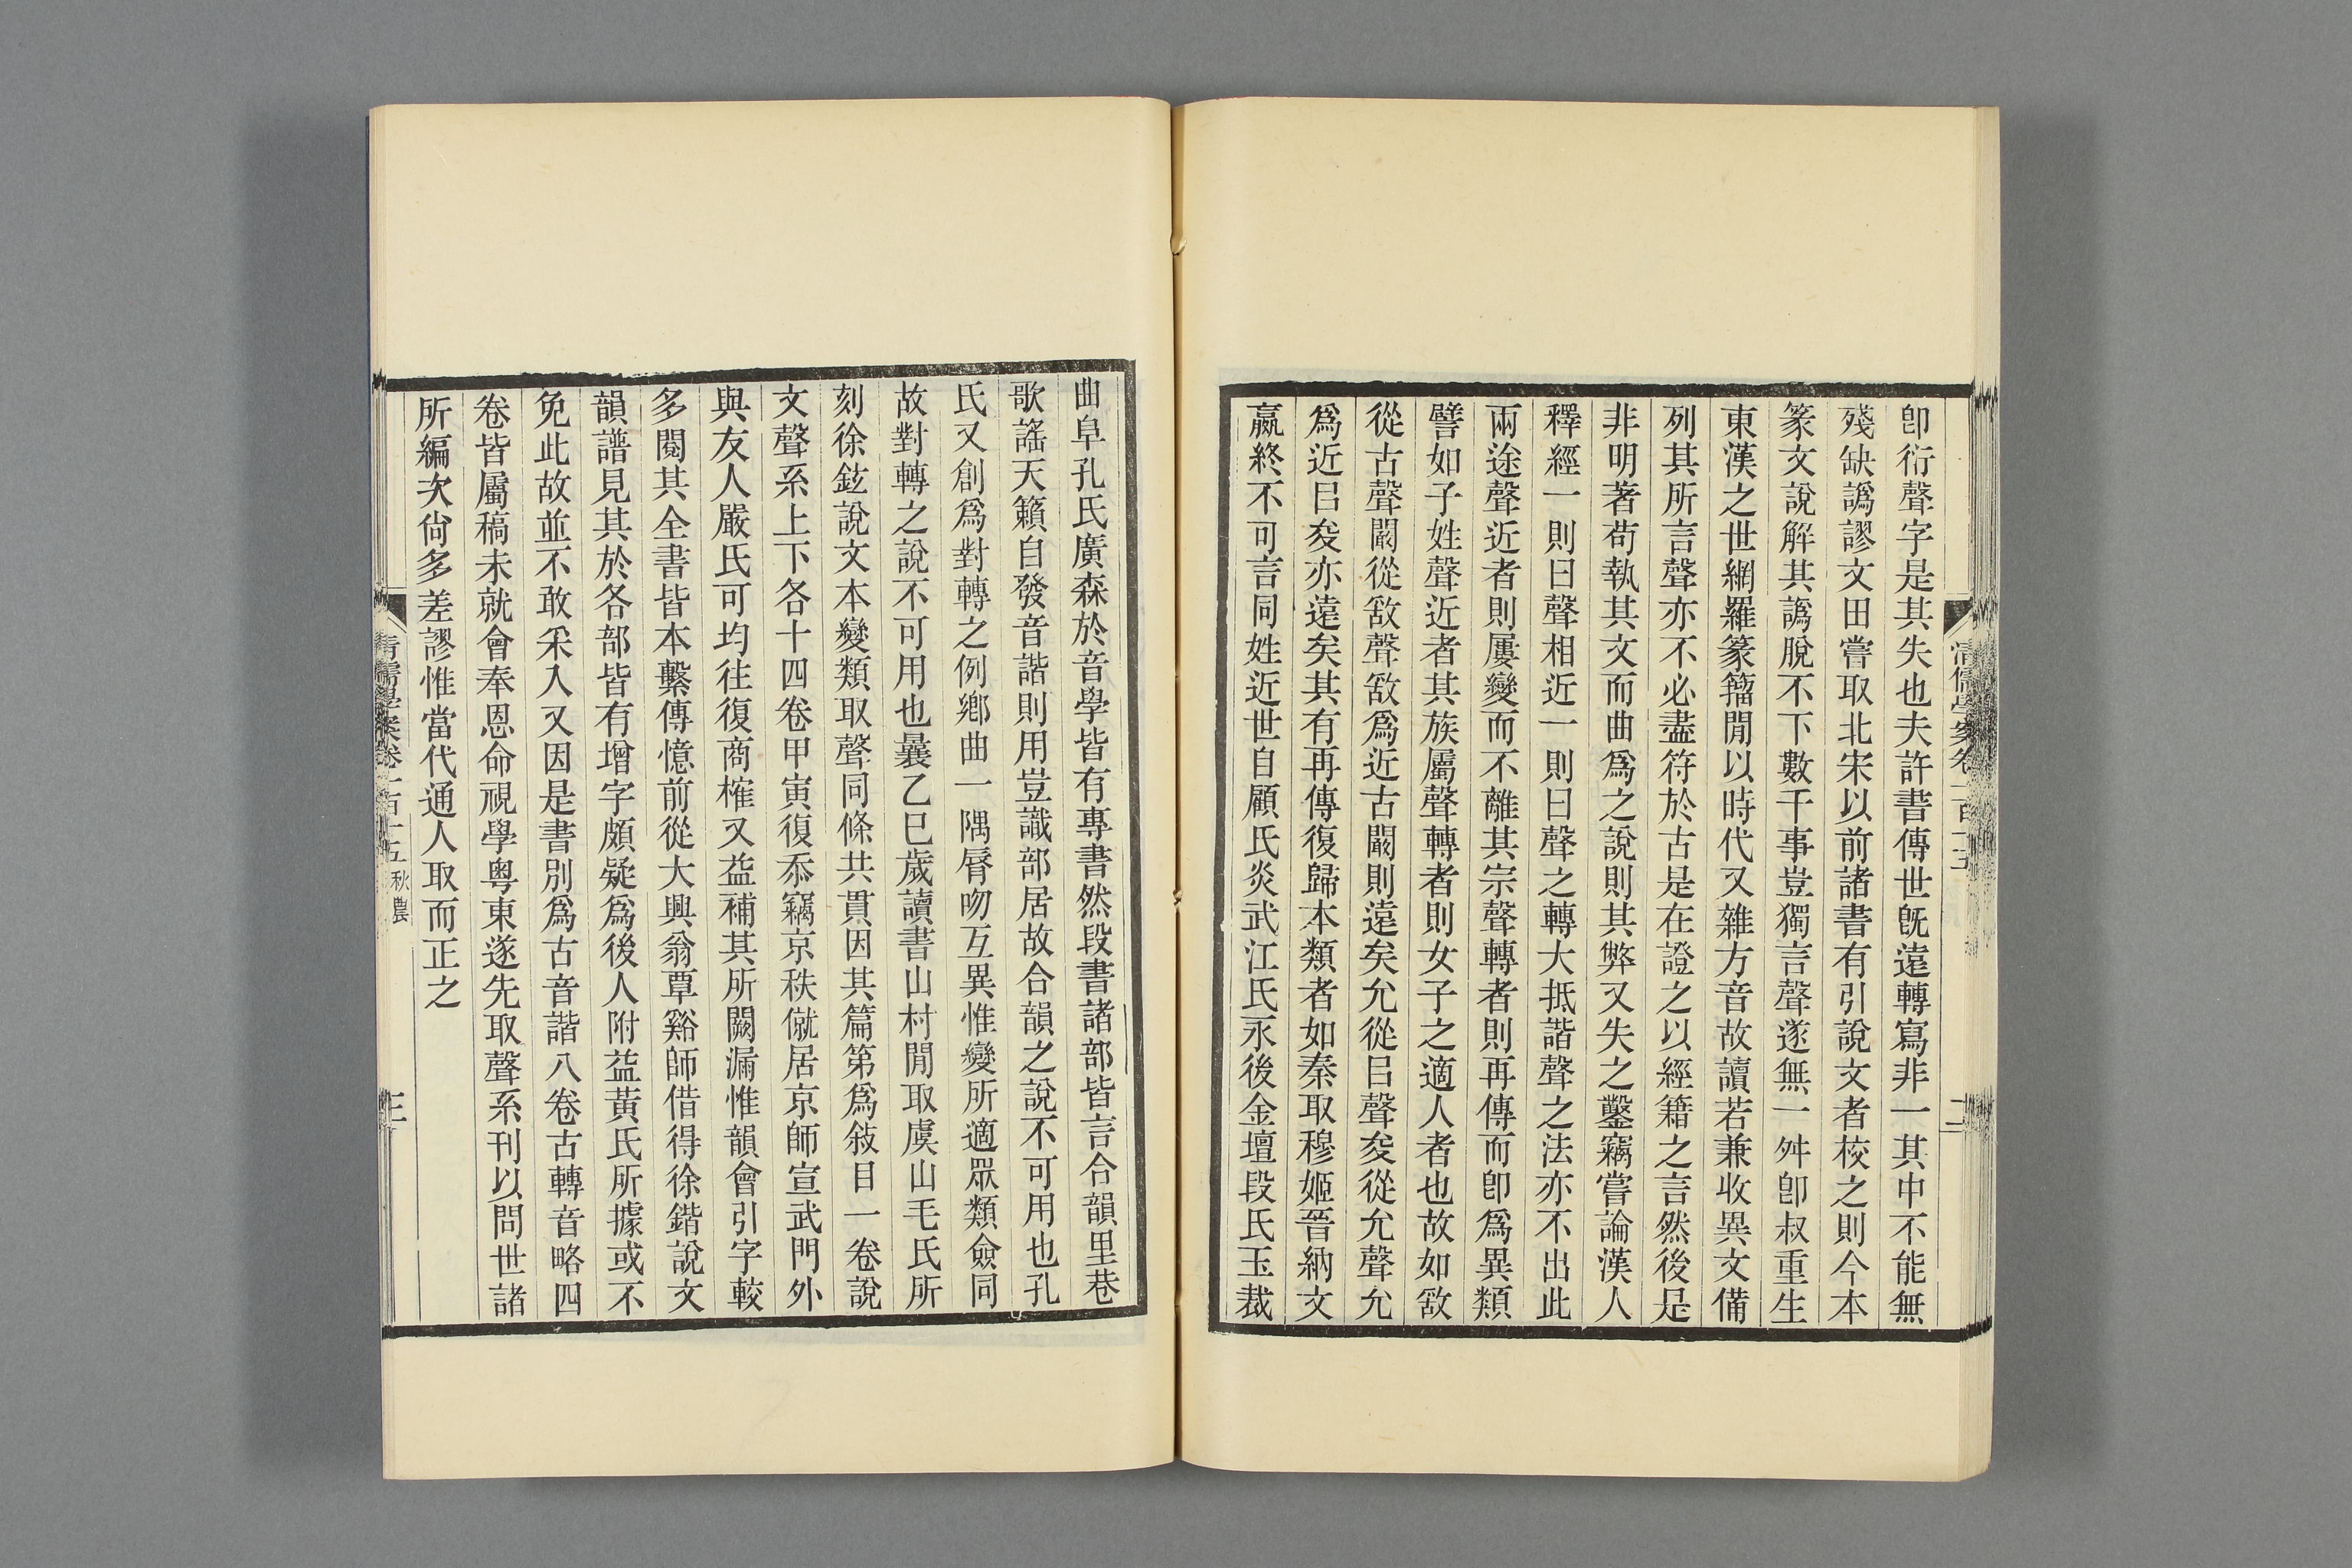 卽衍聲字是其失也夫許書傳世旣遠轉寫非一其中不能無
殘缺譌謬文田嘗取北宋以前諸書有引說文者校之則今本
篆文說解其譌脫不下數千事豈獨言聲遂無一舛卽叔重生
東漢之世網羅篆籀閒以時代又雜方音故讀若兼收異文備
列其所言聲亦不必盡符於古是在證之以經籍之言然後是
非明著苟執其文而曲爲之說則其弊又失之鑿竊嘗論漢人
釋經一則曰聲相近一則曰聲之轉大抵諧聲之法亦不出此
兩途聲近者則屢變而不離其宗聲轉者則再傳而卽爲異類
譬如子姓聲近者其族屬聲轉者則女子之適人者也故如敔
從古聲闞從敔聲敔爲近古闞則遠矣允從㠯聲夋從允聲允
爲近㠯夋亦遠矣其有再傳復歸本類者如秦取穆姬晉納文
嬴終不可言同姓近世自顧氏炎武江氏永後金壇段氏玉裁
清儒學案卷一百十五
二
曲阜孔氏廣森於音學皆有專書然段書諸部皆言合韻里巷
歌謠天籟自發音諧則用豈識部居故合韻之說不可用也孔
氏又創爲對轉之例鄉曲一隅脣吻互異惟變所適眾類僉同
故對轉之說不可用也曩乙巳歲讀書山村閒取虞山毛氏所
刻徐鉉說文本變類取聲同條共貫因其篇第爲敍目一卷說
文聲系上下各十四卷甲寅復忝竊京秩僦居京師宣武門外
與友人嚴氏可均往復商榷又益補其所闕漏惟韻會引字較
多閱其全書皆本繫傳憶前從大興翁覃谿師借得徐鍇說文
韻譜見其於各部皆有增字頗疑爲後人附益黃氏所據或不
免此故並不敢采入又因是書別爲古音諧八卷古轉音略四
卷皆屬稿未就會奉恩命視學粤東遂先取聲系刊以問世諸
所編次尙多差謬惟當代通人取而正之
清儒學案卷一百十五 秋農
三